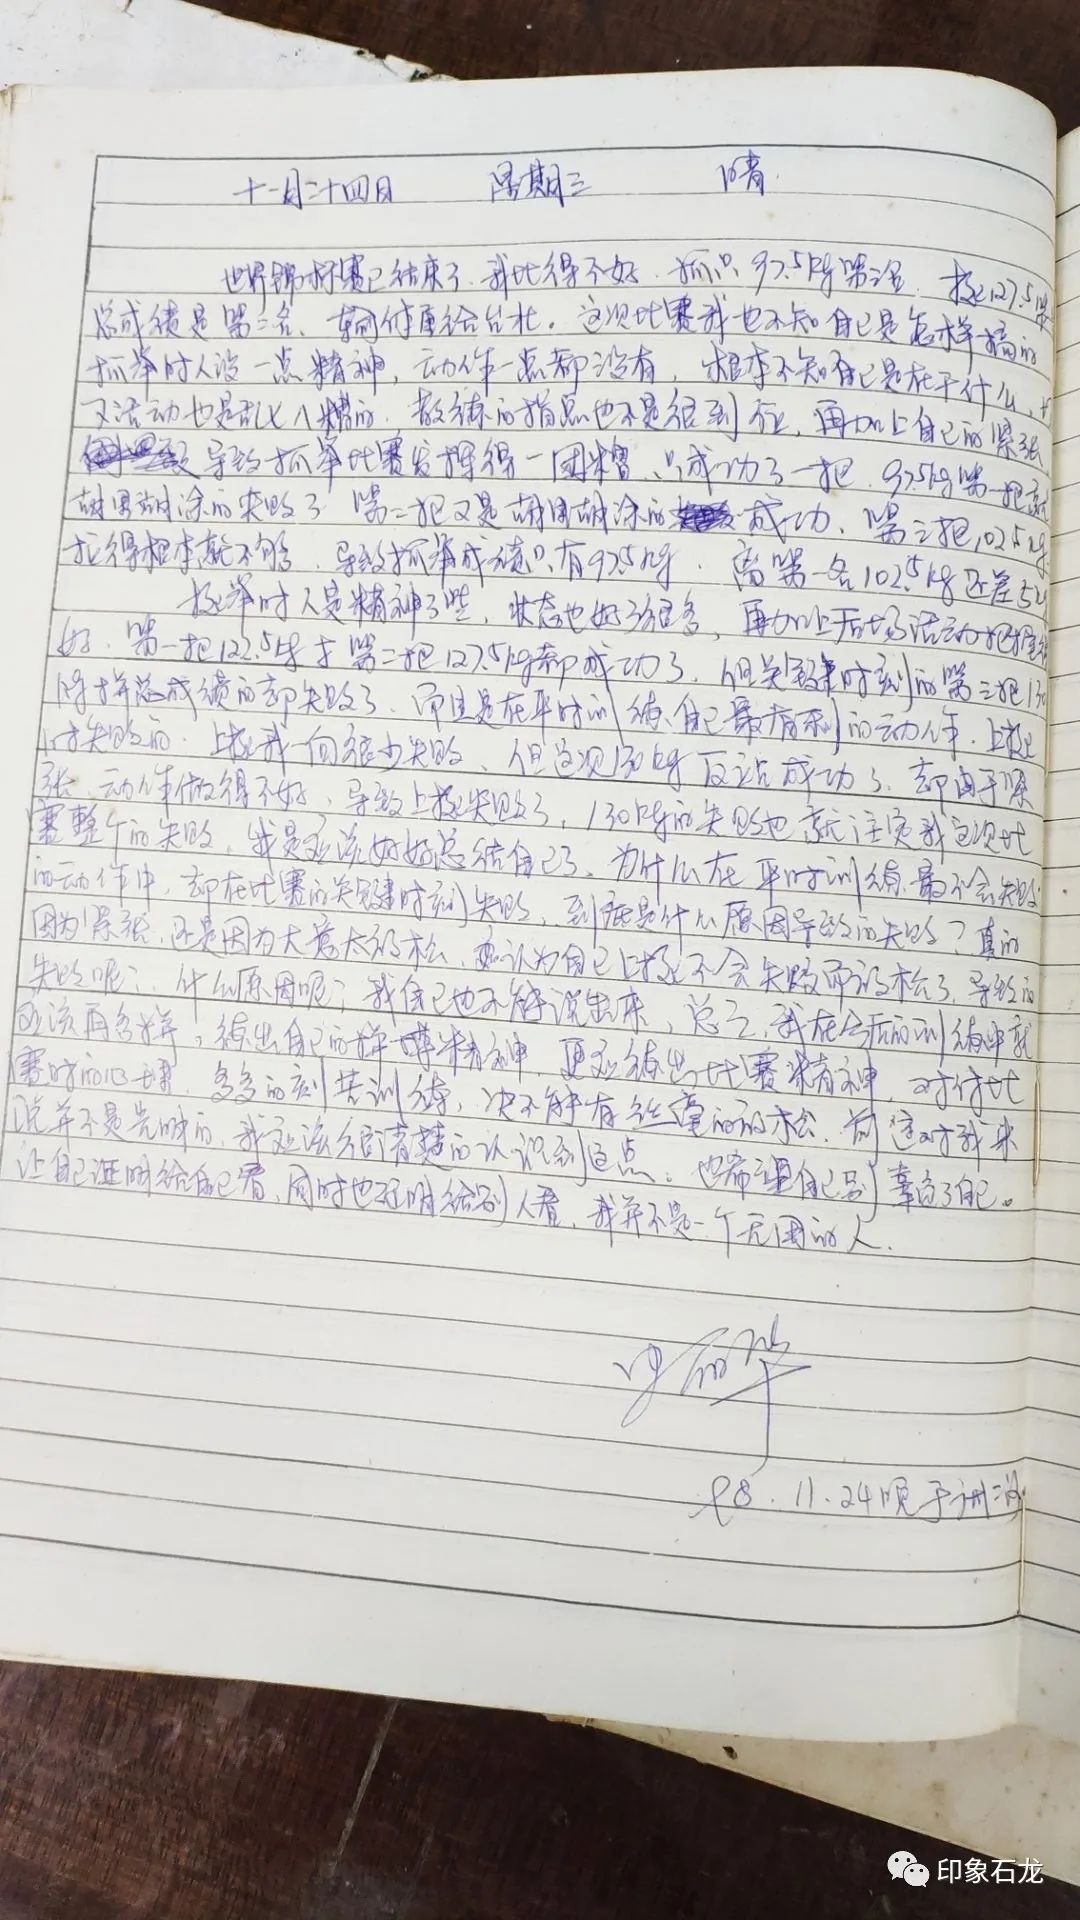 十一月二十四日 星期三 晴.
世界锦标赛已结束了.我比得不好.抓只97.5kg第三名.挺127.5
总成绩是第二名、输给台北。这次比赛我也不知自己是怎样搞的
抓举时人没一点精神,动作一点都没有,根本不知自己是在干什么,
又活动也是乱七八糟的.教练的指点也不是很到位,再加上自己的紧张
导致抓举比赛发挥得一团糟、只成功了一把.97.5kg第一把就
胡里胡涂的失败了 第二把又是胡里胡涂的成功、第三把102.5kg
拉得根本就不够.导致抓举成绩只有97.5kg.离第一名102.5kg还差5
挺举时人是精神了些,状态也好了很多,再加上后场活动把握
好.第一把122.5 第二把127.5kg都成功了.但关键时刻的第三把130
kg拼总成绩的却失败了.而且是在平时训练自己最有利的动作.上挺
时失败的.上挺我一向很少失败、但这次130kg反站成功了.却由于紧
张、动作做得不好,导致上挺失败了,130kg的失败也就注定我这次比
赛整个的失败,我是应该好好总结自己了、为什么在平时训练最不会失败
的动作中,却在比赛的关键时刻失败,到底是什么原因导致的失败?真的
因为紧张,还是因为大意太放松,认为自己上挺不会失败而放松了.导致的
失败呢?.什么原因呢?我自己也不能说出来,总之,我在今后的训练中就
应该再多拼,练出自己的拼搏精神,更应练出比赛精神,对付比
赛时的心,多多的刻苦训练,决不能有丝毫的放松.这对我来
说并不是光的,我应该很清楚的认识到这点.也希望自己别辜负了自己。
让自己证明给自己看,同时也证明给别人看,我并不是一个无用的人.
98.11.24晚于
印象石龙